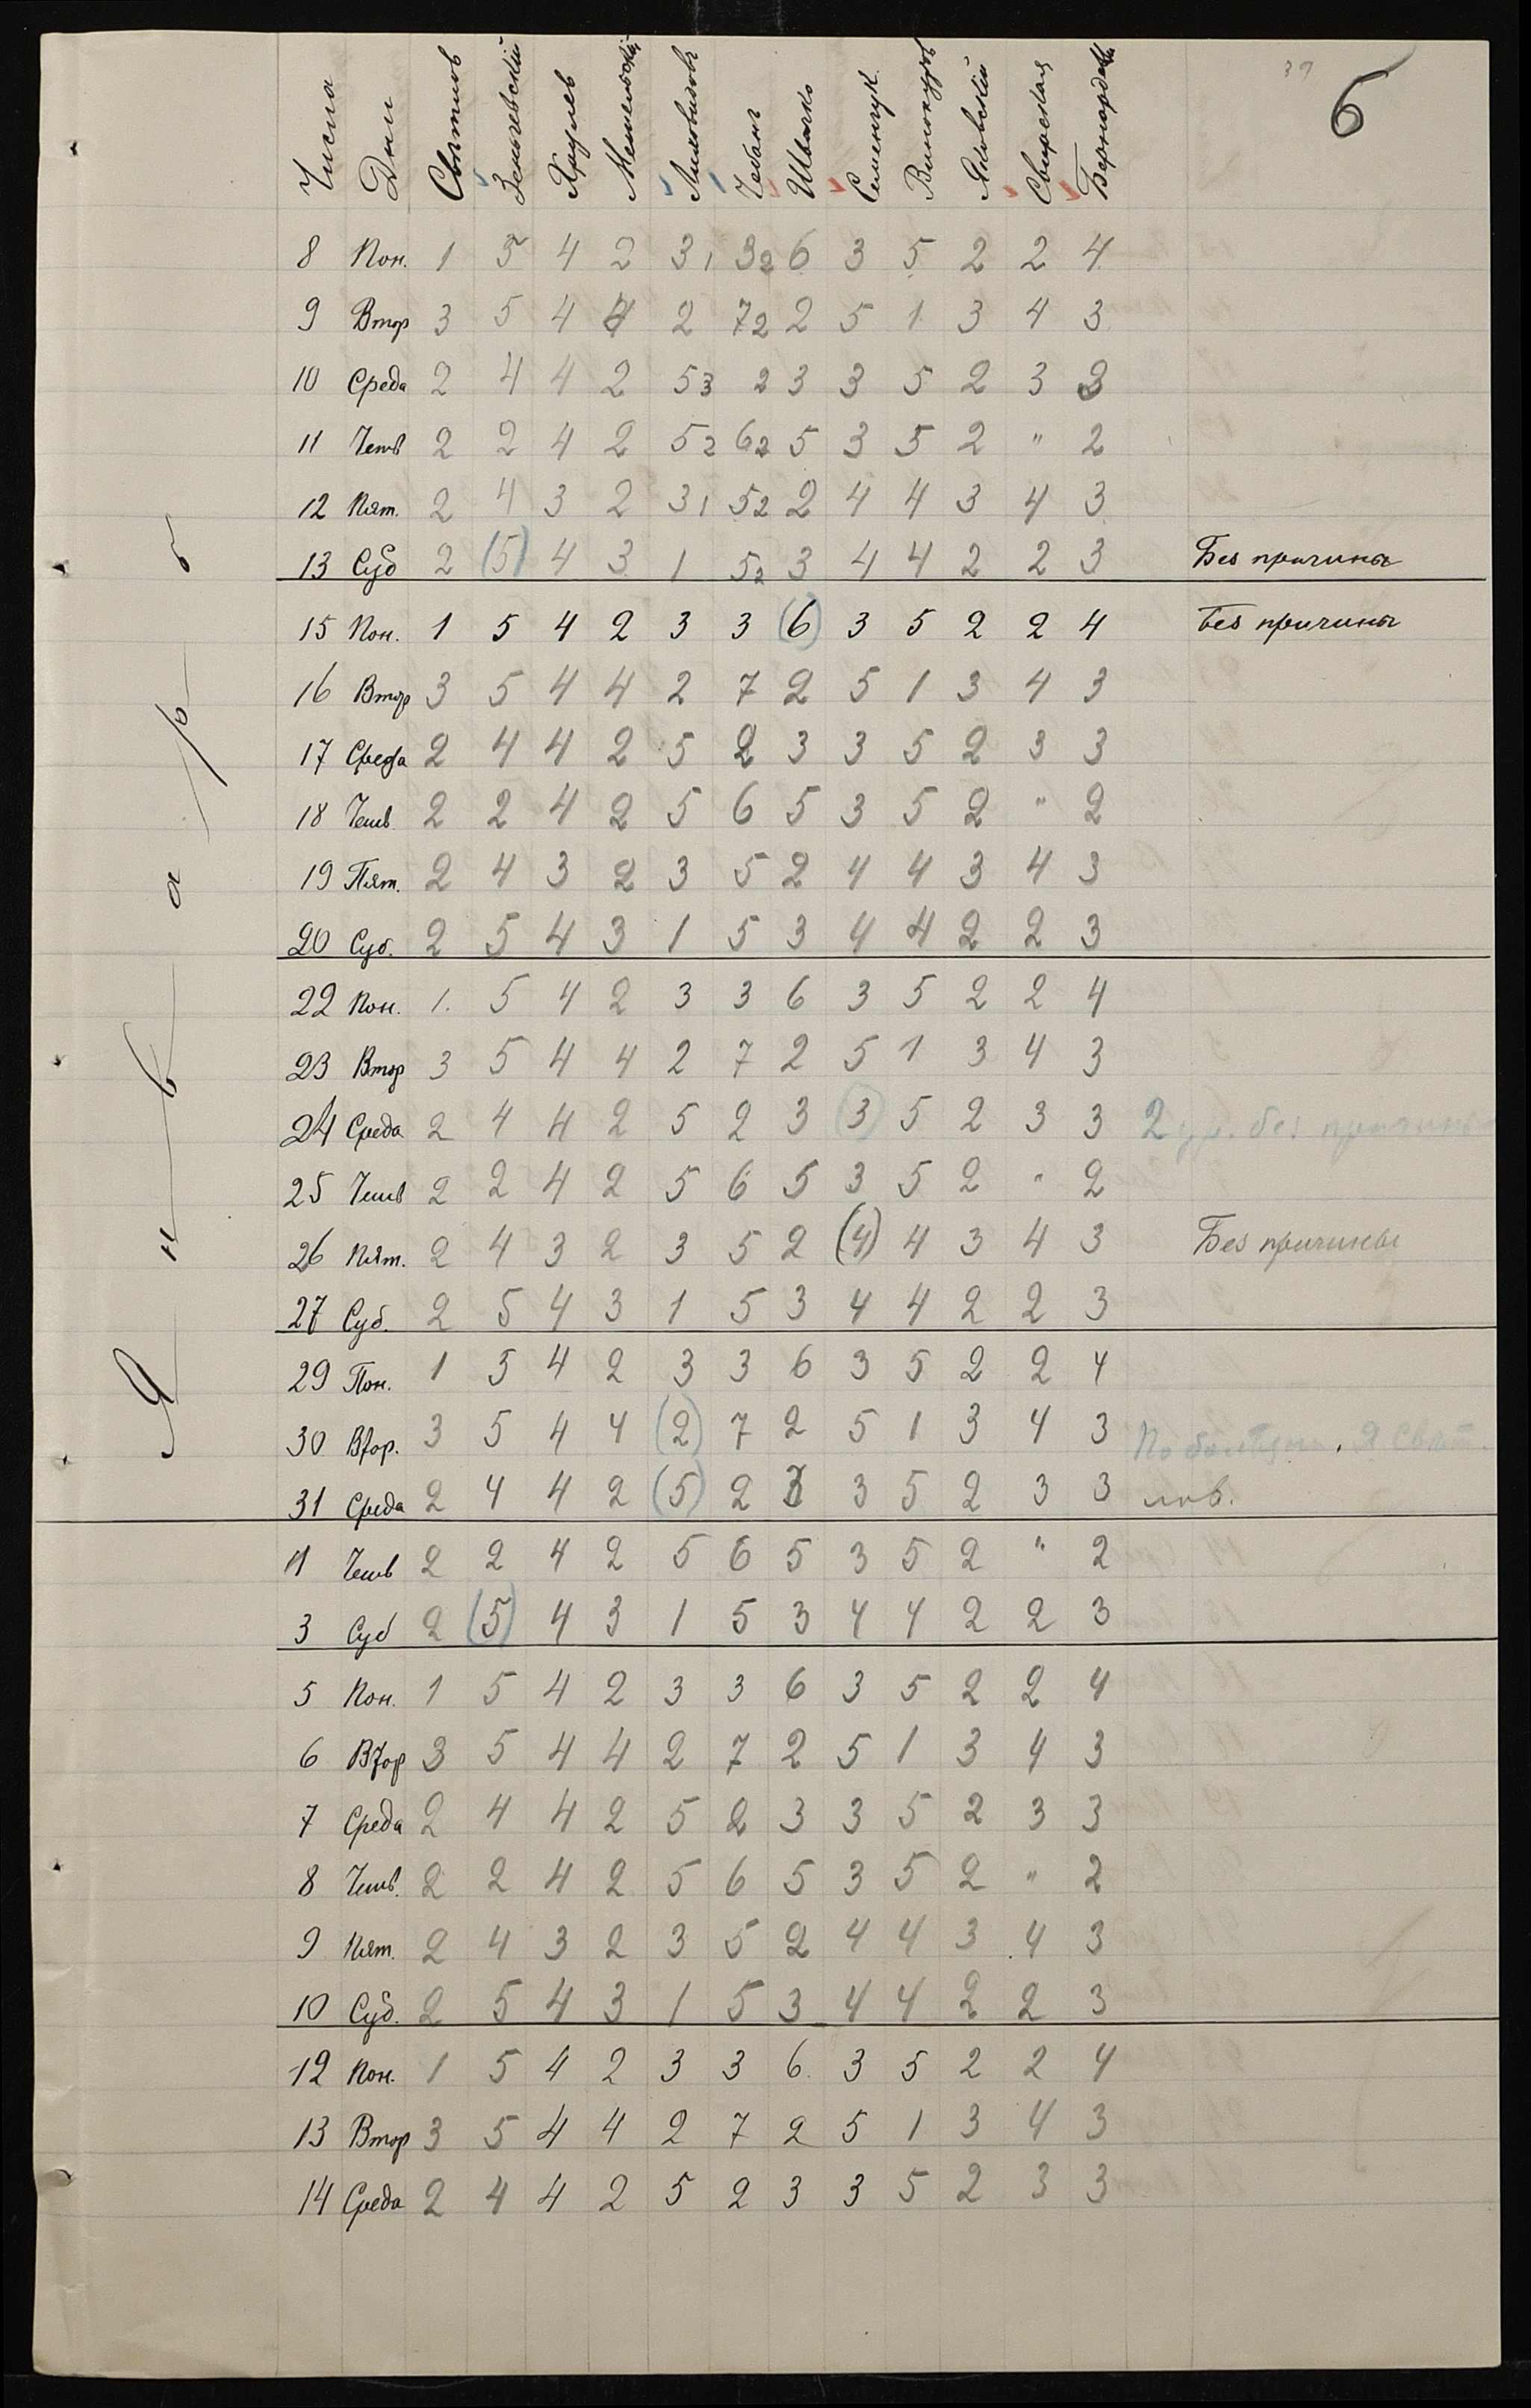 39
6
Числа Дни Святилов Зеньчевский Храплев Мельский Миловидовъ Чебанъ Швачко Семенчук Винокуров Яновский Свирская Бернардов
Январь
8 Пон. 1 5 4 2 3 1 3 2 6 3 5 2 2 4
9 Втор 3 5 4 4 2 7 2 2 5 1 3 4 3
10 Среда 2 4 4 2 5 3 2 3 3 5 2 3 3
11 Четв 2 2 4 2 5 2 6 2 5 3 5 2 " 2
12 Пят. 2 4 3 2 3 1 5 2 2 4 4 3 4 3
13 Суб 2 (5) 4 3 1 5 2 3 4 4 2 2 3 Без причины
15 Пон. 1 5 4 2 3 3 (6) 3 5 2 2 4 Без причины
16 Втор 3 5 4 4 2 7 2 5 1 3 4 3
17 Среда 2 4 4 2 5 2 3 3 5 2 3 3
18 Четв. 2 2 4 2 5 6 5 3 5 2 " 2
19 Пят. 2 4 3 2 3 5 2 4 4 3 4 3
20 Суб. 2 5 4 3 1 5 3 4 4 2 2 3
22 Пон. 1. 5 4 2 3 3 6 3 5 2 2 4
23 Втор 3 5 4 4 2 7 2 5 1 3 4 3
24 Среда 2 4 4 2 5 2 3 (3) 5 2 3 3 2 ур. без причины
25 Четв 2 2 4 2 5 6 5 3 5 2 " 2
26 Пят. 2 4 3 2 3 5 2 (4) 4 3 4 3 Без причины
27 Суб. 2 5 4 3 1 5 3 4 4 2 2 3
29 Пон. 1 5 4 2 3 3 6 3 5 2 2 4
30 Втор. 3 5 4 4 (2) 7 2 5 1 3 4 3 По болезни.
31 Среда 2 4 4 2 (5) 2 3 3 5 2 3 3
1 Четв 2 2 4 2 5 6 5 3 5 2 " 2
3 Суб 2 (5) 4 3 1 5 3 4 4 2 2 3
5 Пон. 1 5 4 2 3 3 6 3 5 2 2 4
6 Втор 3 5 4 4 2 7 2 5 1 3 4 3
7 Среда 2 4 4 2 5 2 3 3 5 2 3 3
8 Четв. 2 2 4 2 5 6 5 3 5 2 " 2
9 Пят. 2 4 3 2 3 5 2 4 4 3 4 3
10 Суб. 2 5 4 3 1 5 3 4 4 2 2 3
12 Пон. 1 5 4 2 3 3 6 3 5 2 2 4
13 Втор 3 5 4 4 2 7 2 5 1 3 4 3
14 Среда 2 4 4 2 5 2 3 3 5 2 3 3